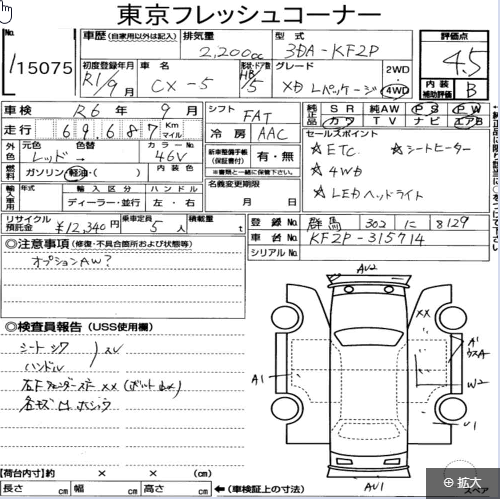 東京フレッシュコーナー
No. 15075
車歴 (自家用以外は記入) 排気量 2,200cc 型式 3DA-KF2P 評価点 4.5
初度登録年月 R1/9月 車名 CX-5 形状・ドア数 HB/5 グレード XD Lパッケージ 2WD 4WD 内装補助評価 B
車検 R6年 9月 シフト FAT 純正品 SR 純AW PS PW
走行 69,687 Km マイル 冷房 AAC カワ TV ナビ エアB
外色 元色 レッド → 色替 カラーNo. 46V 新車整備手帳(保証書付) 有・無 セールスポイント
燃料 ガソリン・軽油・( ) 内装色 ※書類と一緒に保管して下さい ☆ETC ☆シートヒーター
輸入車用 年式 輸入区分 ハンドル 名義変更期限 ☆4WD
ディーラー・並行 左・右 月 日 ☆LEDヘッドライト
リサイクル預託金 ¥12,340円 乗車定員 5人 積載量 t 登録No. 群馬 302 に 8129
車台No. KF2P-315714
◎注意事項 (修復・不具合箇所および状態等) シリアルNo.
オプションAW?
AU2
XX
A1
W2
A1
U1
AU1
◎検査員報告 (USS使用欄)
シート シワ
ハンドル スレ
【荷台内寸】 × × (cm)
長さ cm 幅 cm 高さ cm ←(車検証上の寸法)
スペア
拡大